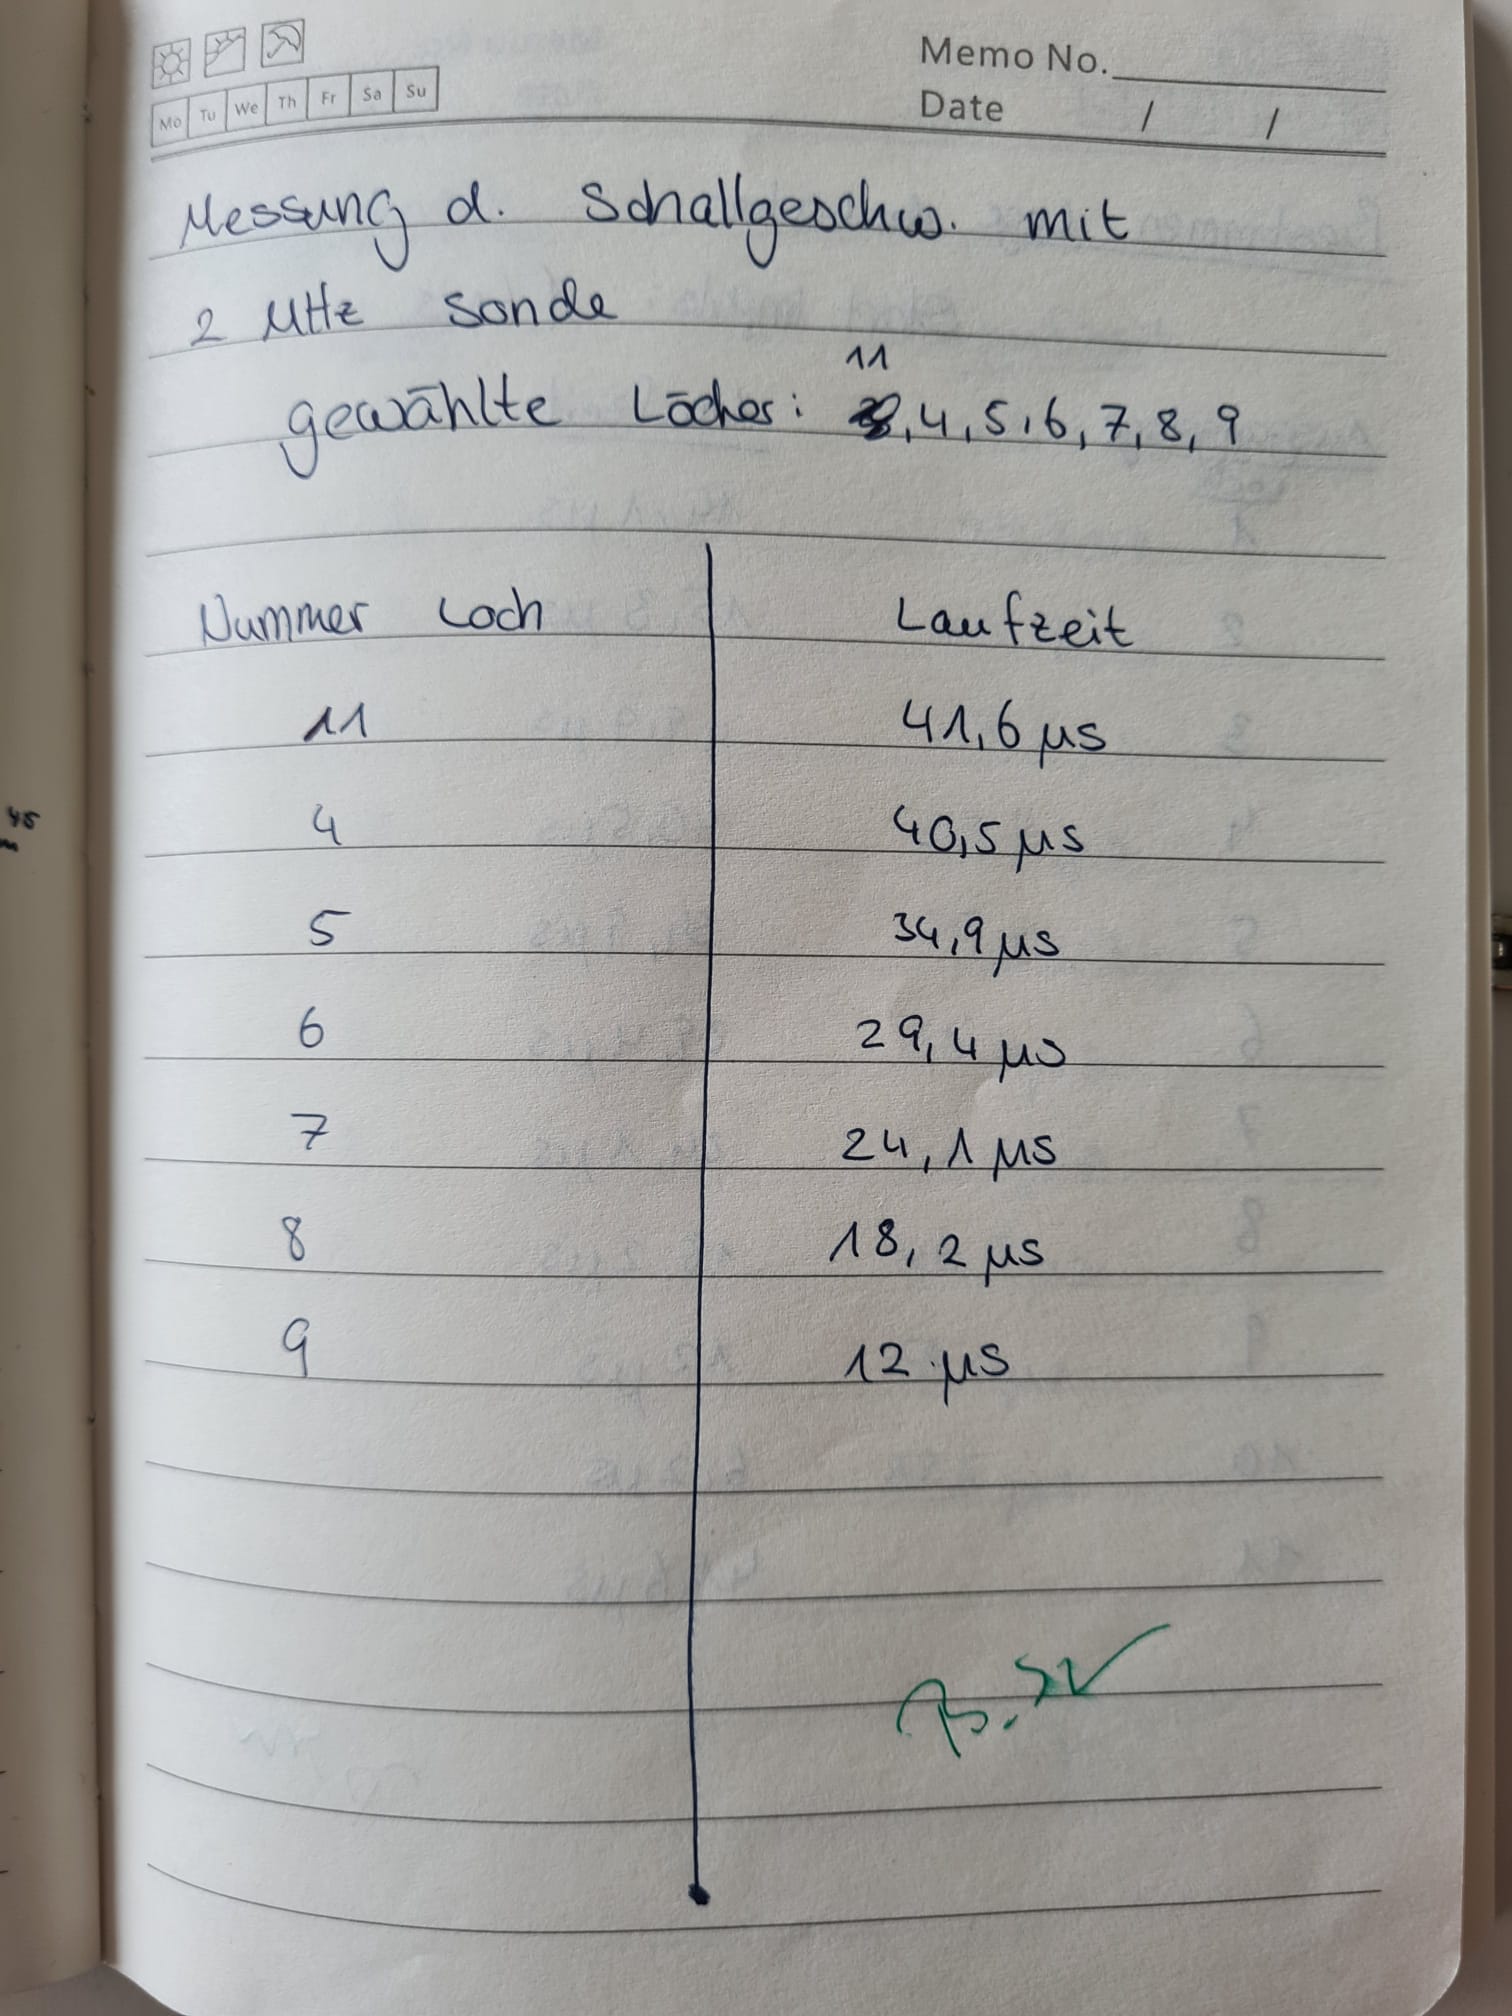 Mo Tu We Th Fr Sa Su
Memo No.
Date / /
Messung d. Schallgeschw. mit
2 MHz Sonde
11
gewählte Löcher: , 4, 5, 6, 7, 8, 9
Nummer Loch Laufzeit
11 41,6 µs
4 40,5 µs
5 34,9 µs
6 29,4 µs
7 24,1 µs
8 18,2 µs
9 12 µs
45